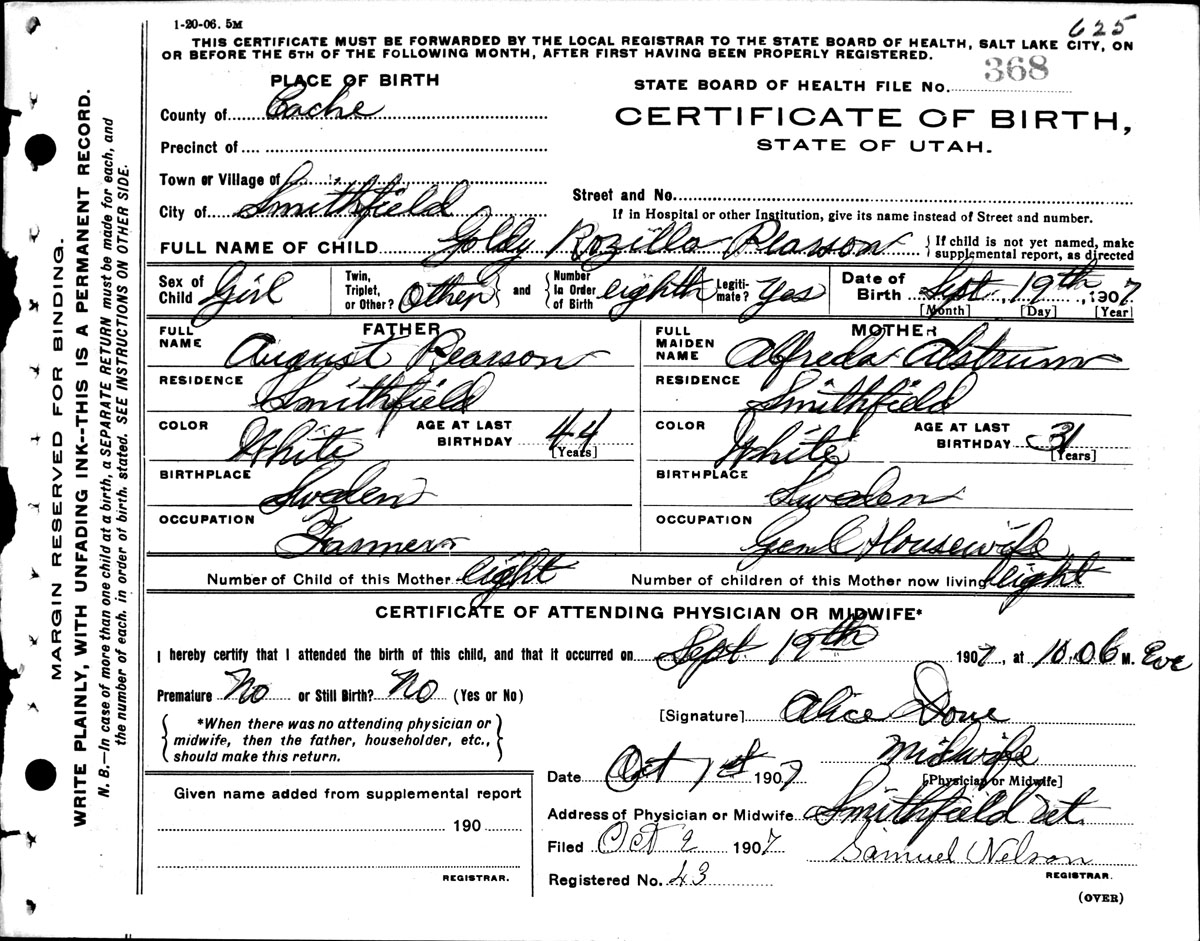 1-20-06. 5M
625
THIS CERTIFICATE MUST BE FORWARDED BY THE LOCAL REGISTRAR TO THE STATE BOARD OF HEALTH, SALT LAKE CITY, ON
OR BEFORE THE 5TH OF THE FOLLOWING MONTH, AFTER FIRST HAVING BEEN PROPERLY REGISTERED.
PLACE OF BIRTH
STATE BOARD OF HEALTH FILE No. 368
County of Cache
CERTIFICATE OF BIRTH,
STATE OF UTAH.
Precinct of
Town or Village of
Street and No.
City of Smithfield
If in Hospital or other Institution, give its name instead of Street and number.
FULL NAME OF CHILD Goldy Rozilla Pearson { If child is not yet named, make supplemental report, as directed
Sex of Child Girl Twin, Triplet, or Other? Other } and { Number In Order of Birth eighth Legiti- mate? Yes Date of Birth Sept. 19th, 1907
[Month] [Day] [Year]
FATHER
FULL NAME August Pearson
RESIDENCE Smithfield
COLOR White AGE AT LAST BIRTHDAY 44
[Years]
BIRTHPLACE Sweden
OCCUPATION Farmer
MOTHER
FULL MAIDEN NAME Alfreda Alstrum
RESIDENCE Smithfield
COLOR White AGE AT LAST BIRTHDAY 31
[Years]
BIRTHPLACE Sweden
OCCUPATION Genl Housewife
Number of Child of this Mother eight Number of children of this Mother now living eight
CERTIFICATE OF ATTENDING PHYSICIAN OR MIDWIFE*
I hereby certify that I attended the birth of this child, and that it occurred on Sept. 19th 1907, at 10.06 M. Eve
Premature No or Still Birth? No (Yes or No)
{ *When there was no attending physician or
midwife, then the father, householder, etc.,
should make this return. }
[Signature] Alice Done
Midwife
Date Oct 1st 1907 [Physician or Midwife]
Given name added from supplemental report
190
REGISTRAR.
Address of Physician or Midwife Smithfield Ut.
Filed Oct 2 1907 Samuel Nelson
REGISTRAR.
Registered No. 43
(OVER)
MARGIN RESERVED FOR BINDING.
WRITE PLAINLY, WITH UNFADING INK--THIS IS A PERMANENT RECORD.
N. B.—In case of more than one child at a birth, a SEPARATE RETURN must be made for each, and
the number of each, in order of birth, stated. SEE INSTRUCTIONS ON OTHER SIDE.